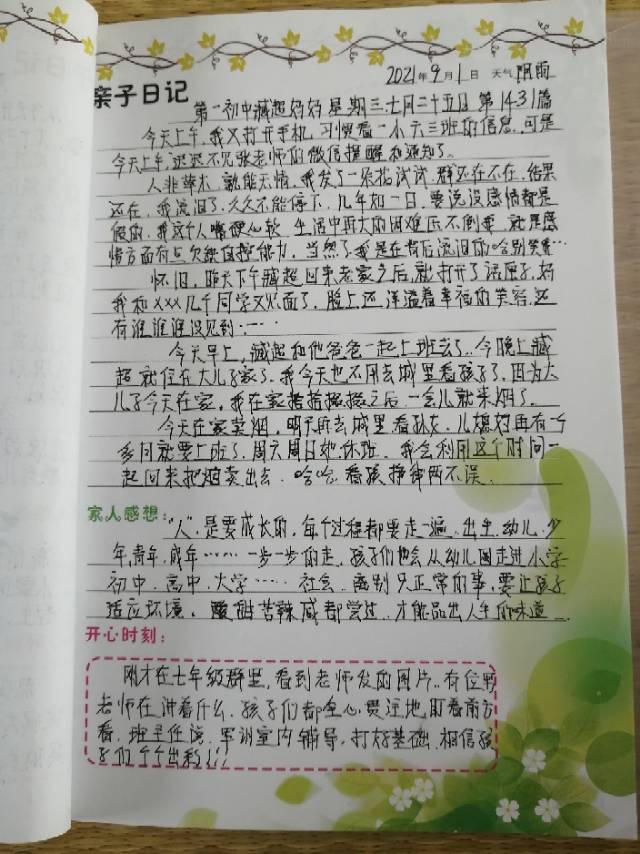 2021年9月1日 天气 阴雨
亲子日记
第一初中臧超妈妈 星期三.七月二十五日 第1431篇
今天上午,我又打开手机,习惯看一小六三班的信息,可是
今天上午,迟迟不见张老师的微信提醒和通知了。
人非草木,孰能无情,我发了一条试试,群还在不在,结果
还在,我流泪了,久久不能停下,几年如一日,要说没感情都是
假的,我这个人嘴硬心软,生活中再大的困难压不倒我,就是感
情方面有点欠缺自控能力,当然了我是在背后流泪的哈别笑我…
怀旧,昨天下午臧超回来老家之后,就打开了话匣子,妈
我和xxx几个同学又见面了,脸上还洋溢着幸福的笑容,还
有谁谁谁没见到……
今天早上,臧超和他爸爸一起上班去了..今晚上臧
超就住在大儿子家了,我今天也不用去城里看孩子了,因为大
儿子今天在家,我在家拾拾掇掇之后,一会儿就来烟了。
今天在家卖烟,明天再去城里看孙女,儿媳妇再有一个
多月就要上班了,周六周日她休班,我会利用这个时间一
起回来把烟卖出去,哈哈,看孩挣钱两不误。
家人感想:"人",是要成长的,每个过程都要走一遍,出生,幼儿,少
年,青年,成年……一步一步的走,孩子们也会从幼儿园走进小学
初中,高中,大学……社会,离别只正常的事,要让孩子
适应环境,酸甜苦辣咸都尝过,才能品出人生的味道…
开心时刻:
刚才在七年级群里,看到老师发的图片..有位男
老师在讲着什么,孩子们都全心贯注地,盯着前方
看,班主任说,军训室内辅导,打好基础,相信孩
子们个个出彩!!!